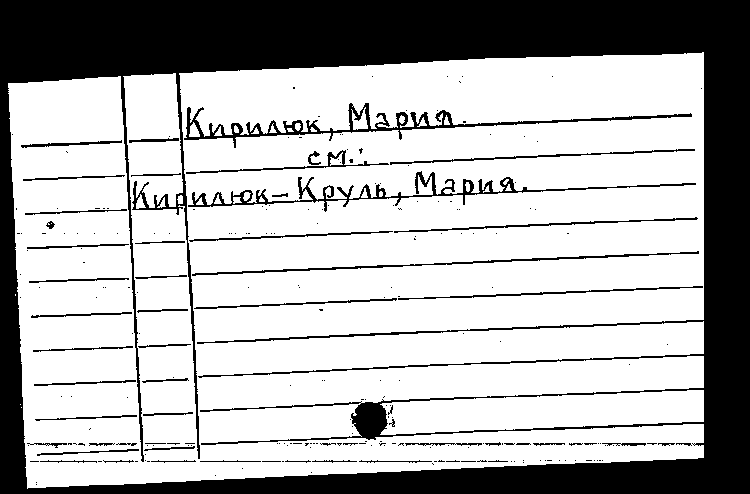 Кирилюк, Мария.
см.:
Кирилюк-Круль, Мария.